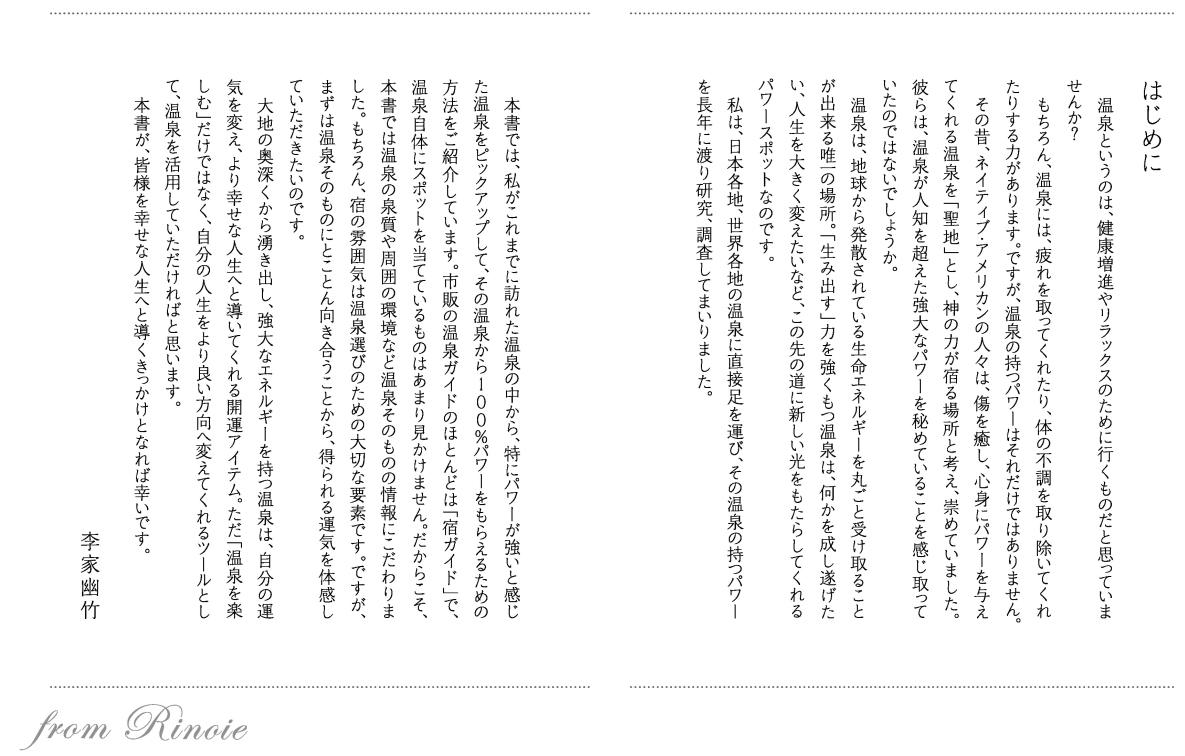 はじめに
温泉というのは、健康増進やリラックスのために行くものだと思っていま
せんか？
もちろん、温泉には、疲れを取ってくれたり、体の不調を取り除いてくれ
たりする力があります。ですが、温泉の持つパワーはそれだけではありません。
その昔、ネイティブ・アメリカンの人々は、傷を癒し、心身にパワーを与え
てくれる温泉を「聖地」とし、神の力が宿る場所と考え、崇めていました。
彼らは、温泉が人知を超えた強大なパワーを秘めていることを感じ取って
いたのではないでしょうか。
温泉は、地球から発散されている生命エネルギーを丸ごと受け取ること
が出来る唯一の場所。「生み出す」力を強くもつ温泉は、何かを成し遂げた
い、人生を大きく変えたいなど、この先の道に新しい光をもたらしてくれる
パワースポットなのです。
私は、日本各地、世界各地の温泉に直接足を運び、その温泉の持つパワー
を長年に渡り研究、調査してまいりました。
本書では、私がこれまでに訪れた温泉の中から、特にパワーが強いと感じ
た温泉をピックアップして、その温泉から１００％パワーをもらえるための
方法をご紹介しています。市販の温泉ガイドのほとんどは「宿ガイド」で、
温泉自体にスポットを当てているものはあまり見かけません。だからこそ、
本書では温泉の泉質や周囲の環境など温泉そのものの情報にこだわりま
した。もちろん、宿の雰囲気は温泉選びのための大切な要素です。ですが、
まずは温泉そのものにとことん向き合うことから、得られる運気を体感し
ていただきたいのです。
大地の奥深くから湧き出し、強大なエネルギーを持つ温泉は、自分の運
気を変え、より幸せな人生へと導いてくれる開運アイテム。ただ「温泉を楽
しむ」だけではなく、自分の人生をより良い方向へ変えてくれるツールとし
て、温泉を活用していただければと思います。
本書が、皆様を幸せな人生へと導くきっかけとなれば幸いです。
李家幽竹
from Rinoie